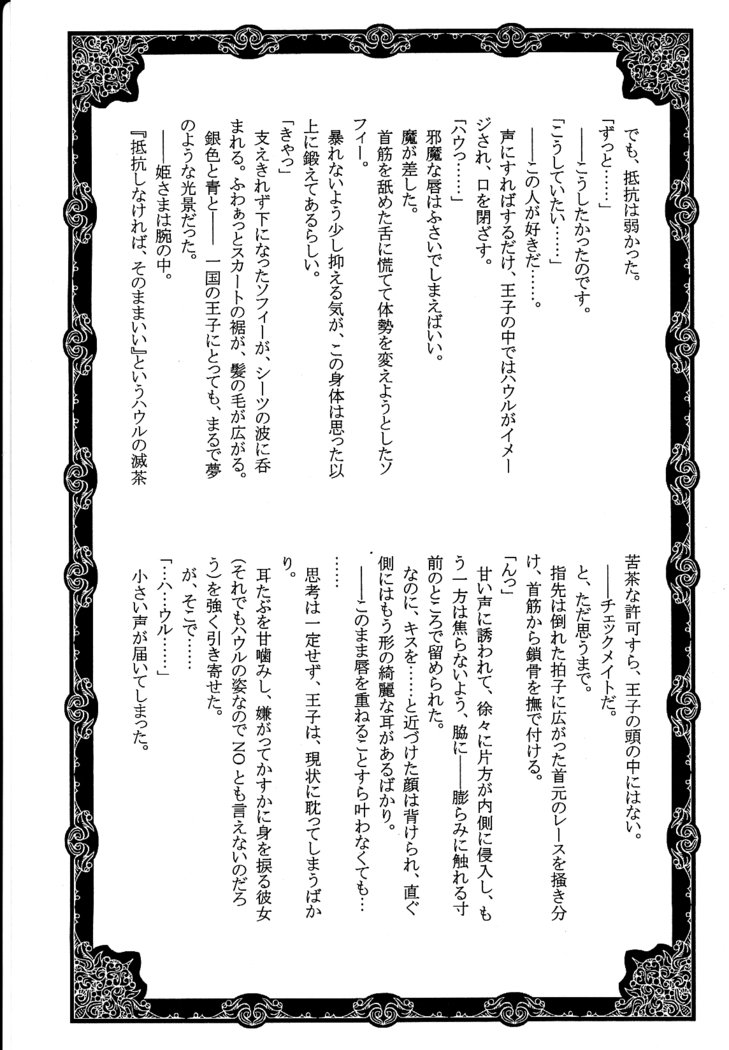 でも、抵抗は弱かった。
「ずっと……」
――こうしたかったのです。
「こうしていたい……」
――この人が好きだ……。
声にすればするだけ、王子の中ではハウルがイメー
ジされ、口を閉ざす。
「ハウっ……」
邪魔な唇はふさいでしまえばいい。
魔が差した。
首筋を舐めた舌に慌てて体勢を変えようとしたソ
フィー。
暴れないよう少し抑える気が、この身体は思った以
上に鍛えてあるらしい。
「きゃっ」
支えきれず下になったソフィーが、シーツの波に呑
まれる。ふわぁっとスカートの裾が、髪の毛が広がる。
銀色と青と―― 一国の王子にとっても、まるで夢
のような光景だった。
――姫さまは腕の中。
『抵抗しなければ、そのままいい』というハウルの滅茶
苦茶な許可すら、王子の頭の中にはない。
――チェックメイトだ。
と、ただ思うまで。
指先は倒れた拍子に広がった首元のレースを掻き分
け、首筋から鎖骨を撫で付ける。
「んっ」
甘い声に誘われて、徐々に片方が内側に侵入し、も
う一方は焦らないよう、脇に――膨らみに触れる寸
前のところで留められた。
なのに、キスを……と近づけた顔は背けられ、直ぐ
側にはもう形の綺麗な耳があるばかり。
――このまま唇を重ねることすら叶わなくても…
……
思考は一定せず、王子は、現状に耽ってしまうばか
り。
耳たぶを甘噛みし、嫌がってかすかに身を捩る彼女
(それでもハウルの姿なので NO とも言えないのだろ
う)を強く引き寄せた。
が、そこで……
「…ハ…ウル……」
小さい声が届いてしまった。